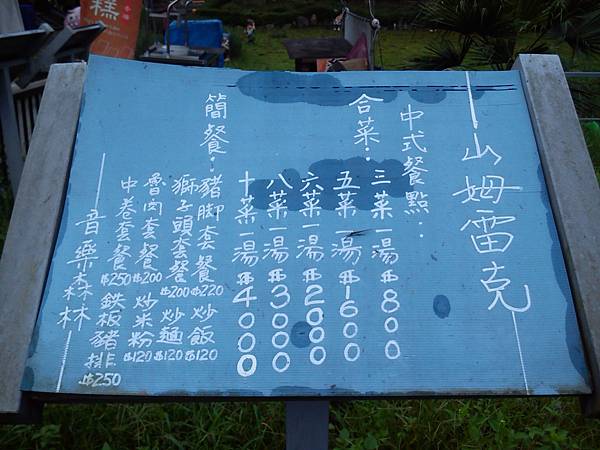 山姆雷克
中式餐點：
合菜：
三菜一湯$800
五菜一湯$1600
六菜一湯$2000
八菜一湯$3000
十菜一湯$4000
簡餐：
豬腳套餐$220 炒飯$120
獅子頭套餐$200 炒麵$120
魯肉套餐$200 炒米粉$120
中卷套餐$250 鉄板豬排$250
音樂森林
糕